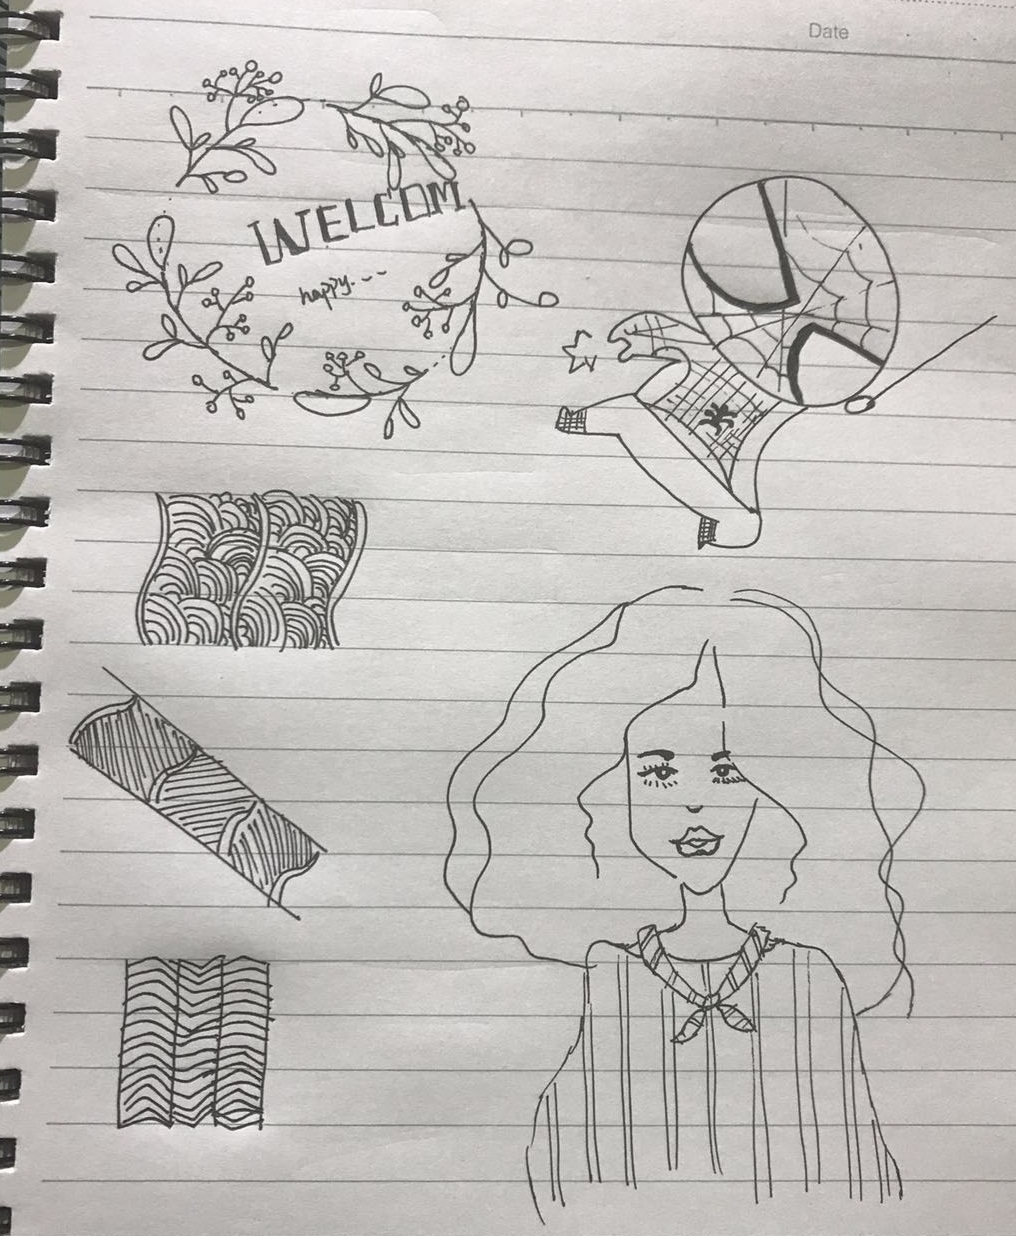 Date
WELCOM
happy---